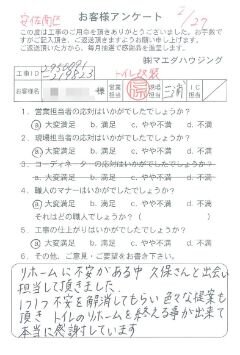 安佐南区
お客様アンケート
2/27
この度は工事のご用命を頂きありがとうございました。お手数で
すがご記入頂き、ご返送頂きますようお願い申し上げます。
ご返送頂いた方から、毎月抽選で感謝券を進呈致します。
㈱マエダハウジング
工事ID
トイレ改装
お客様名
様
営業担当
工事担当
1. 営業担当者の応対はいかがでしたでしょうか?
a. 大変満足 b. 満足 c. やや不満 d. 不満
2. 現場担当者の応対はいかがでしたでしょうか?
a. 大変満足 b. 満足 c. やや不満 d. 不満
3. コーディネーターの応対はいかがでしたでしょうか?
a. 大変満足 b. 満足 c. やや不満 d. 不満
4. 職人のマナーはいかがでしたでしょうか?
a. 大変満足 b. 満足 c. やや不満 d. 不満
それはどの職人でしょうか( )
5. 工事の仕上がりはいかがでしたでしょうか?
a. 大変満足 b. 満足 c. やや不満 d. 不満
6. その他、ご意見・ご要望をお書き下さい。
リホームに不安がある中 久保さんと出会い
担当して頂きました。
1つ1つ不安を解消してもらい色々な提案も
頂き トイレのリホームを終える事が出来て
本当に感謝しています